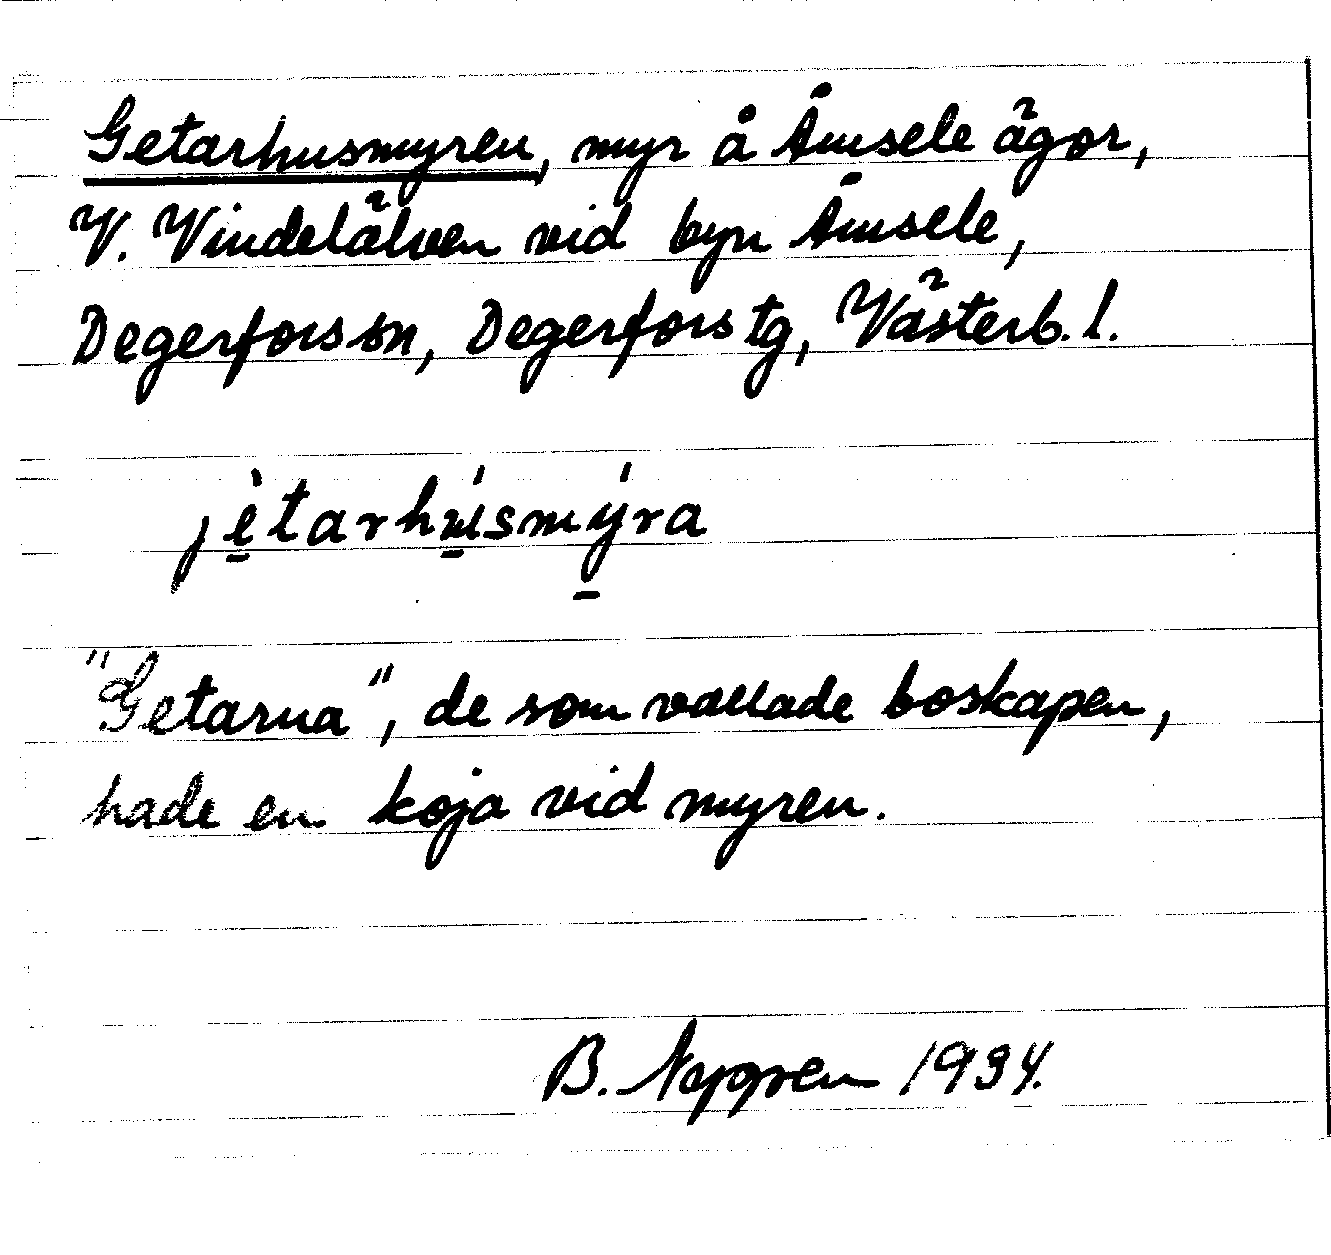 Getarhusmyren, myr å Åmsele ägor,
V. Vindelälven vid byn Åmsele,
Degerfors sn, Degerfors tg, Västerb. l.
jè̱tarhú̱smý̱ra
"Getarna", de som vallade boskapen,
hade en koja vid myren.
B. Nygren 1934.